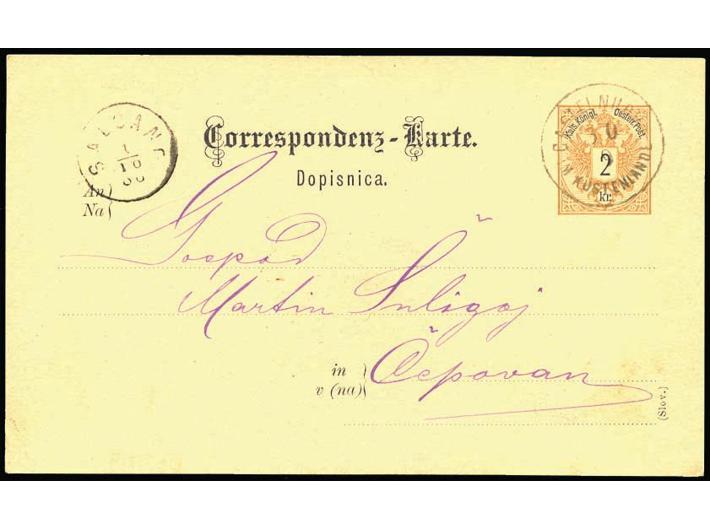 SALCANO
1/10
Kais. Königl. Oesterr. Post.
CASTELNUOVO
30
IM KÜSTENLAND
2
kr.
Correspondenz-Karte.
Dopisnica.
An
Na
Gospod
Martin Šuligoj
in
v (na)
Čepovan
(Slov.)